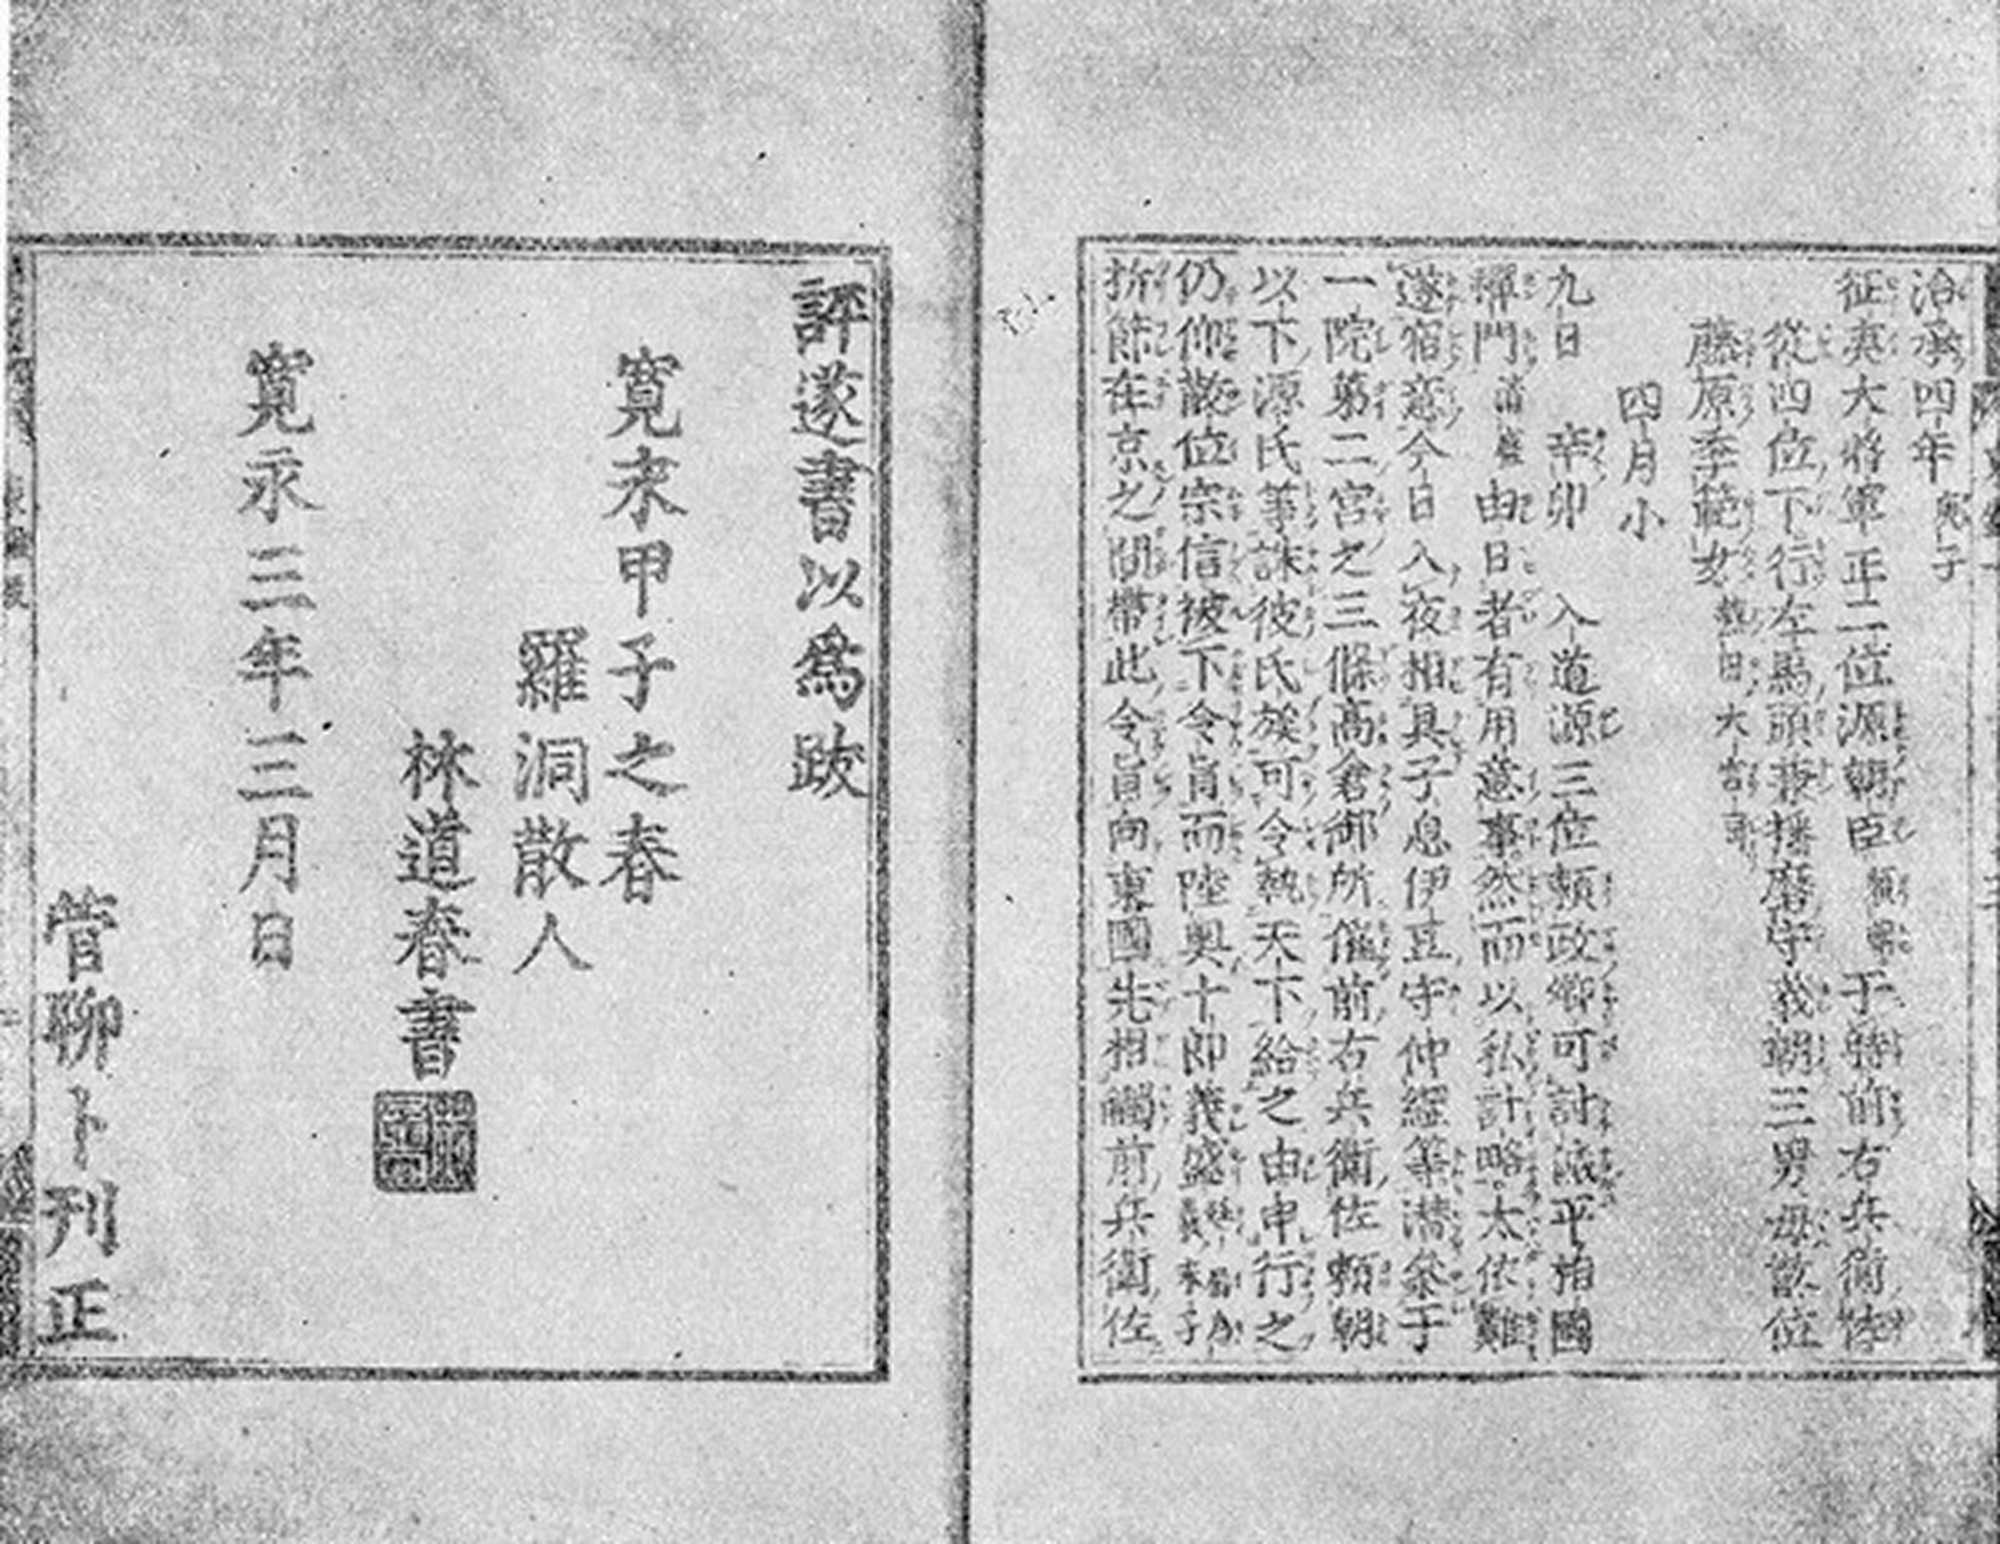 治承四年 庚子
征夷大將軍正二位源朝臣 頼朝 于時前右兵衛佐
從四位下行左馬頭兼播磨守義朝三男母散位
藤原季範女 熱田大宮司
四月小
九日 辛卯 入道源三位頼政卿可討滅平相國
禪門 清盛 由日者有用意事然而以私計略太依難
遂宿意今日入夜相具子息伊豆守仲綱等潜參于
一院第二宮之三條高倉御所催前右兵衛佐頼朝
以下源氏等誅彼氏族可令執天下給之由申行之
仍仰散位宗信被下令旨而陸奥十郎義盛 爲義末子
折節在京之間帶此令旨向東國先相觸前兵衛佐
評遂書以爲跋
寛永甲子之春
羅洞散人
林道春書
寛永三年三月日
管聊卜刊正